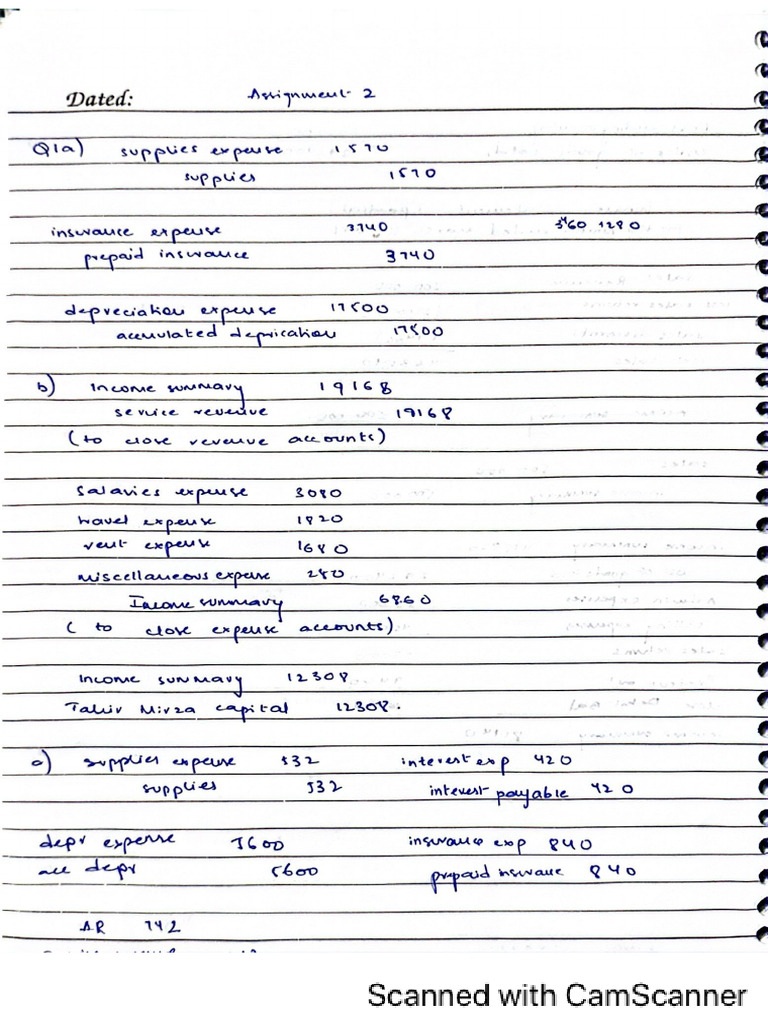 Dated: Assignment 2
Q1a) supplies expense 1570
supplies 1570
insurance expense 3740 1280
prepaid insurance 3740
depreciation expense 17500
accumulated deprication 17500
b) Income summary 19168
service revenue 19168
(to close revenue accounts)
salaries expense 3080
travel expense 1820
rent expense 1680
miscellaneous expense 280
Income summary 6860
( to close expense accounts)
Income summary 12308
Tahir Mirza capital 12308.
c) supplies expense 532 interest exp 420
supplies 532 interest payable 420
depr expense 5600 insurance exp 840
acc depr 5600 prepaid insurance 840
AR 742
Scanned with CamScanner